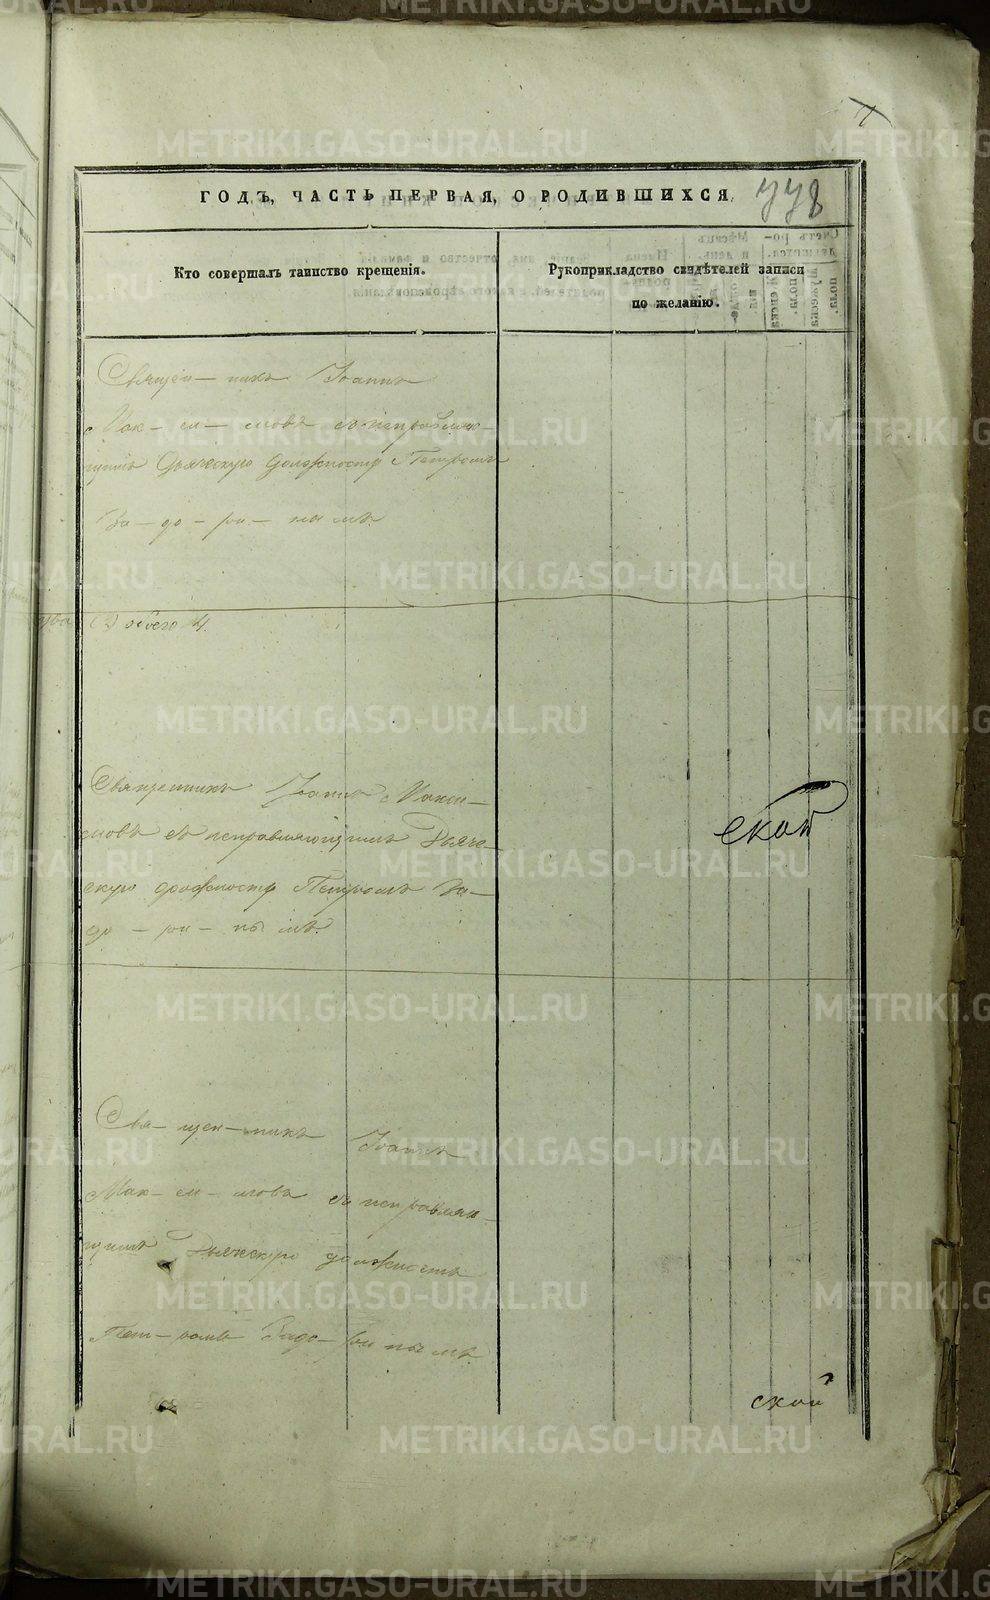 778
ГОДЪ, ЧАСТЬ ПЕРВАЯ, О РОДИВШИХСЯ
Кто совершалъ таинство крещенія.
Рукоприкладство свидѣтелей записи
по желанію.
Священ- никъ Іоаннъ
Мак- си- мовъ съ исправляю-
щимъ Дьяческую должность Петромъ
За- до- ри- нымъ
обоего 4.
Священникъ Іоаннъ Макси-
мовъ съ исправляющимъ Дьяче-
скую должность Петромъ За-
до- ри- нымъ.
ской
Свя- щен- никъ Іоаннъ
Мак- си- мовъ съ исправляю-
щимъ Дьяческую должность
Пет- ромъ Задо- ринымъ
ской
METRIKI.GASO-URAL.RU